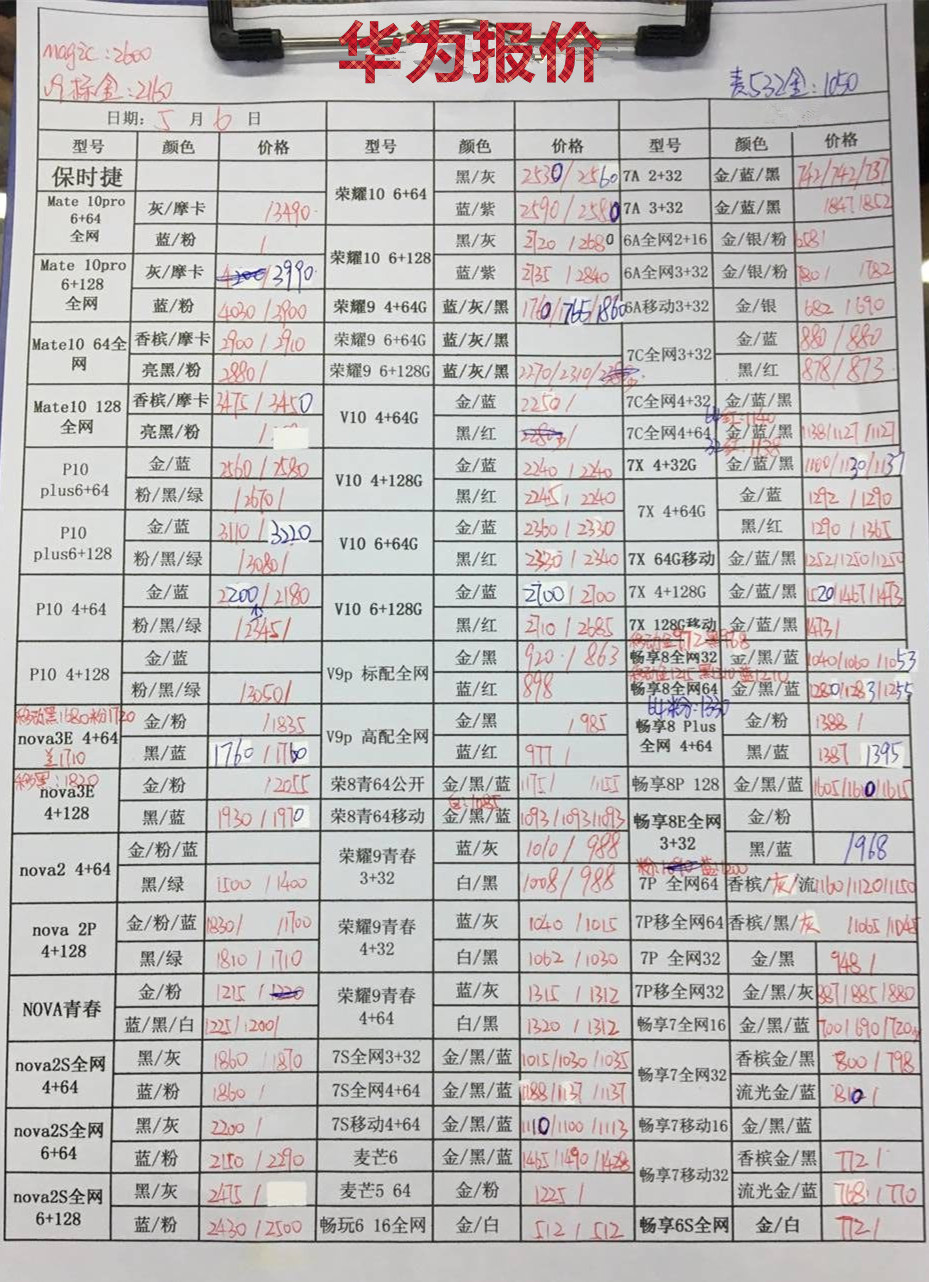 华为报价
magic:2600
V9标金:2160
麦532金:1050
日期: 5 月 6 日
型号 颜色 价格 型号 颜色 价格 型号 颜色 价格
保时捷 荣耀10 6+64 黑/灰 2530/2560 7A 2+32 金/蓝/黑 742/742/737
Mate 10pro 6+64 全网 灰/摩卡 /3490 蓝/紫 2590/2580 7A 3+32 金/蓝/黑 /847/852
蓝/粉 / 荣耀10 6+128 黑/灰 2720/2680 6A全网2+16 金/银/粉 658/
Mate 10pro 6+128 全网 灰/摩卡 /3990 蓝/紫 2735/2840 6A全网3+32 金/银/粉 780/ /782
蓝/粉 4030/3900 荣耀9 4+64G 蓝/灰/黑 1760/1765/1860 6A移动3+32 金/银 682/690
Mate10 64全网 香槟/摩卡 2900/2910 荣耀9 6+64G 蓝/灰/黑 7C全网3+32 金/蓝 880/880
亮黑/粉 2880/ 荣耀9 6+128G 蓝/灰/黑 2270/2310/ 黑/红 878/873
Mate10 128全网 香槟/摩卡 3475/3450 V10 4+64G 金/蓝 2250/ 7C全网4+32 金/蓝/黑
64红:1140
亮黑/粉 / 黑/红 7C全网4+64 金/蓝/黑 1138/1127/1127
32红:1138
P10 plus6+64 金/蓝 2560/2580 V10 4+128G 金/蓝 2240/2240 7X 4+32G 金/蓝/黑 1100/1130/1137
粉/黑/绿 /2670/ 黑/红 2245/2240 7X 4+64G 金/蓝 1292/1290
P10 plus6+128 金/蓝 3110/3220 V10 6+64G 金/蓝 2360/2330 黑/红 1290/1365
粉/黑/绿 /3080/ 黑/红 2330/2340 7X 64G移动 金/蓝/黑 1252/1250/1250
P10 4+64 金/蓝 2200/2180 V10 6+128G 金/蓝 2700/2700 7X 4+128G 金/蓝/黑 1520/1467/1473
粉/黑/绿 /2345/ 黑/红 2710/2685 7X 128G移动 金/蓝/黑 1473/
移动金972黑968
P10 4+128 金/蓝 V9p 标配全网 金/黑 920/863 畅享8全网32 金/黑/蓝 1040/1060/1053
移动金1215黑1210蓝1210
粉/黑/绿 /3050/ 蓝/红 898 畅享8全网64 金/黑/蓝 1280/1283/1255
移动黑1680粉1720
64粉:1330
nova3E 4+64 金/粉 /1835 V9p 高配全网 金/黑 /985 畅享8 Plus 全网 4+64 金/粉 1388/
蓝1710
黑/蓝 1760/1760 蓝/红 977/ 黑/蓝 1387 1395
移黑:1820
nova3E 4+128 金/粉 /2055 荣8青64公开 金/黑/蓝 1175/ /1155 畅享8P 128 金/黑/蓝 1605/1610/1615
白:1085
黑/蓝 1930/1970 荣8青64移动 金/黑/蓝 1093/1093/1093 畅享8E全网 3+32 金/粉
nova2 4+64 金/粉/蓝 荣耀9青春 3+32 蓝/灰 1010/988 黑/蓝 /968
蓝1200
黑/绿 1500/1400 白/黑 1008/988 7P 全网64 香槟/灰/流 1160/1120/1150
nova 2P 4+128 金/粉/蓝 1830/ /1700 荣耀9青春 4+32 蓝/灰 1040/1015 7P移全网64 香槟/黑/灰 /1065/1045
黑/绿 1810/1710 白/黑 1062/1030 7P 全网32 金/黑 948/
NOVA青春 金/粉 1215/ 荣耀9青春 4+64 蓝/灰 1315/1312 7P移全网32 金/黑/灰 887/885/880
蓝/黑/白 1225/1200/ 白/黑 1320/1312 畅享7全网16 金/黑/蓝 700/690/720
nova2S全网 4+64 黑/灰 1860/1870 7S全网3+32 金/黑/蓝 1015/1030/1035 畅享7全网32 香槟金/黑 800/798
蓝/粉 1860/ 7S全网4+64 金/黑/蓝 1188/1137/1137 流光金/蓝 810/
nova2S全网 6+64 黑/灰 2200/ 7S移动4+64 金/黑/蓝 1110/1100/1113 畅享7移动16 金/黑/蓝
蓝/粉 2150/2290 麦芒6 金/黑/蓝 1465/1490/1428 畅享7移动32 香槟金/黑 772/
nova2S全网 6+128 黑/灰 2475/ 麦芒5 64 金/粉 1225/ 流光金/蓝 768/770
蓝/粉 2430/2500 畅玩6 16全网 金/白 512/512 畅享6S全网 金/白 772/